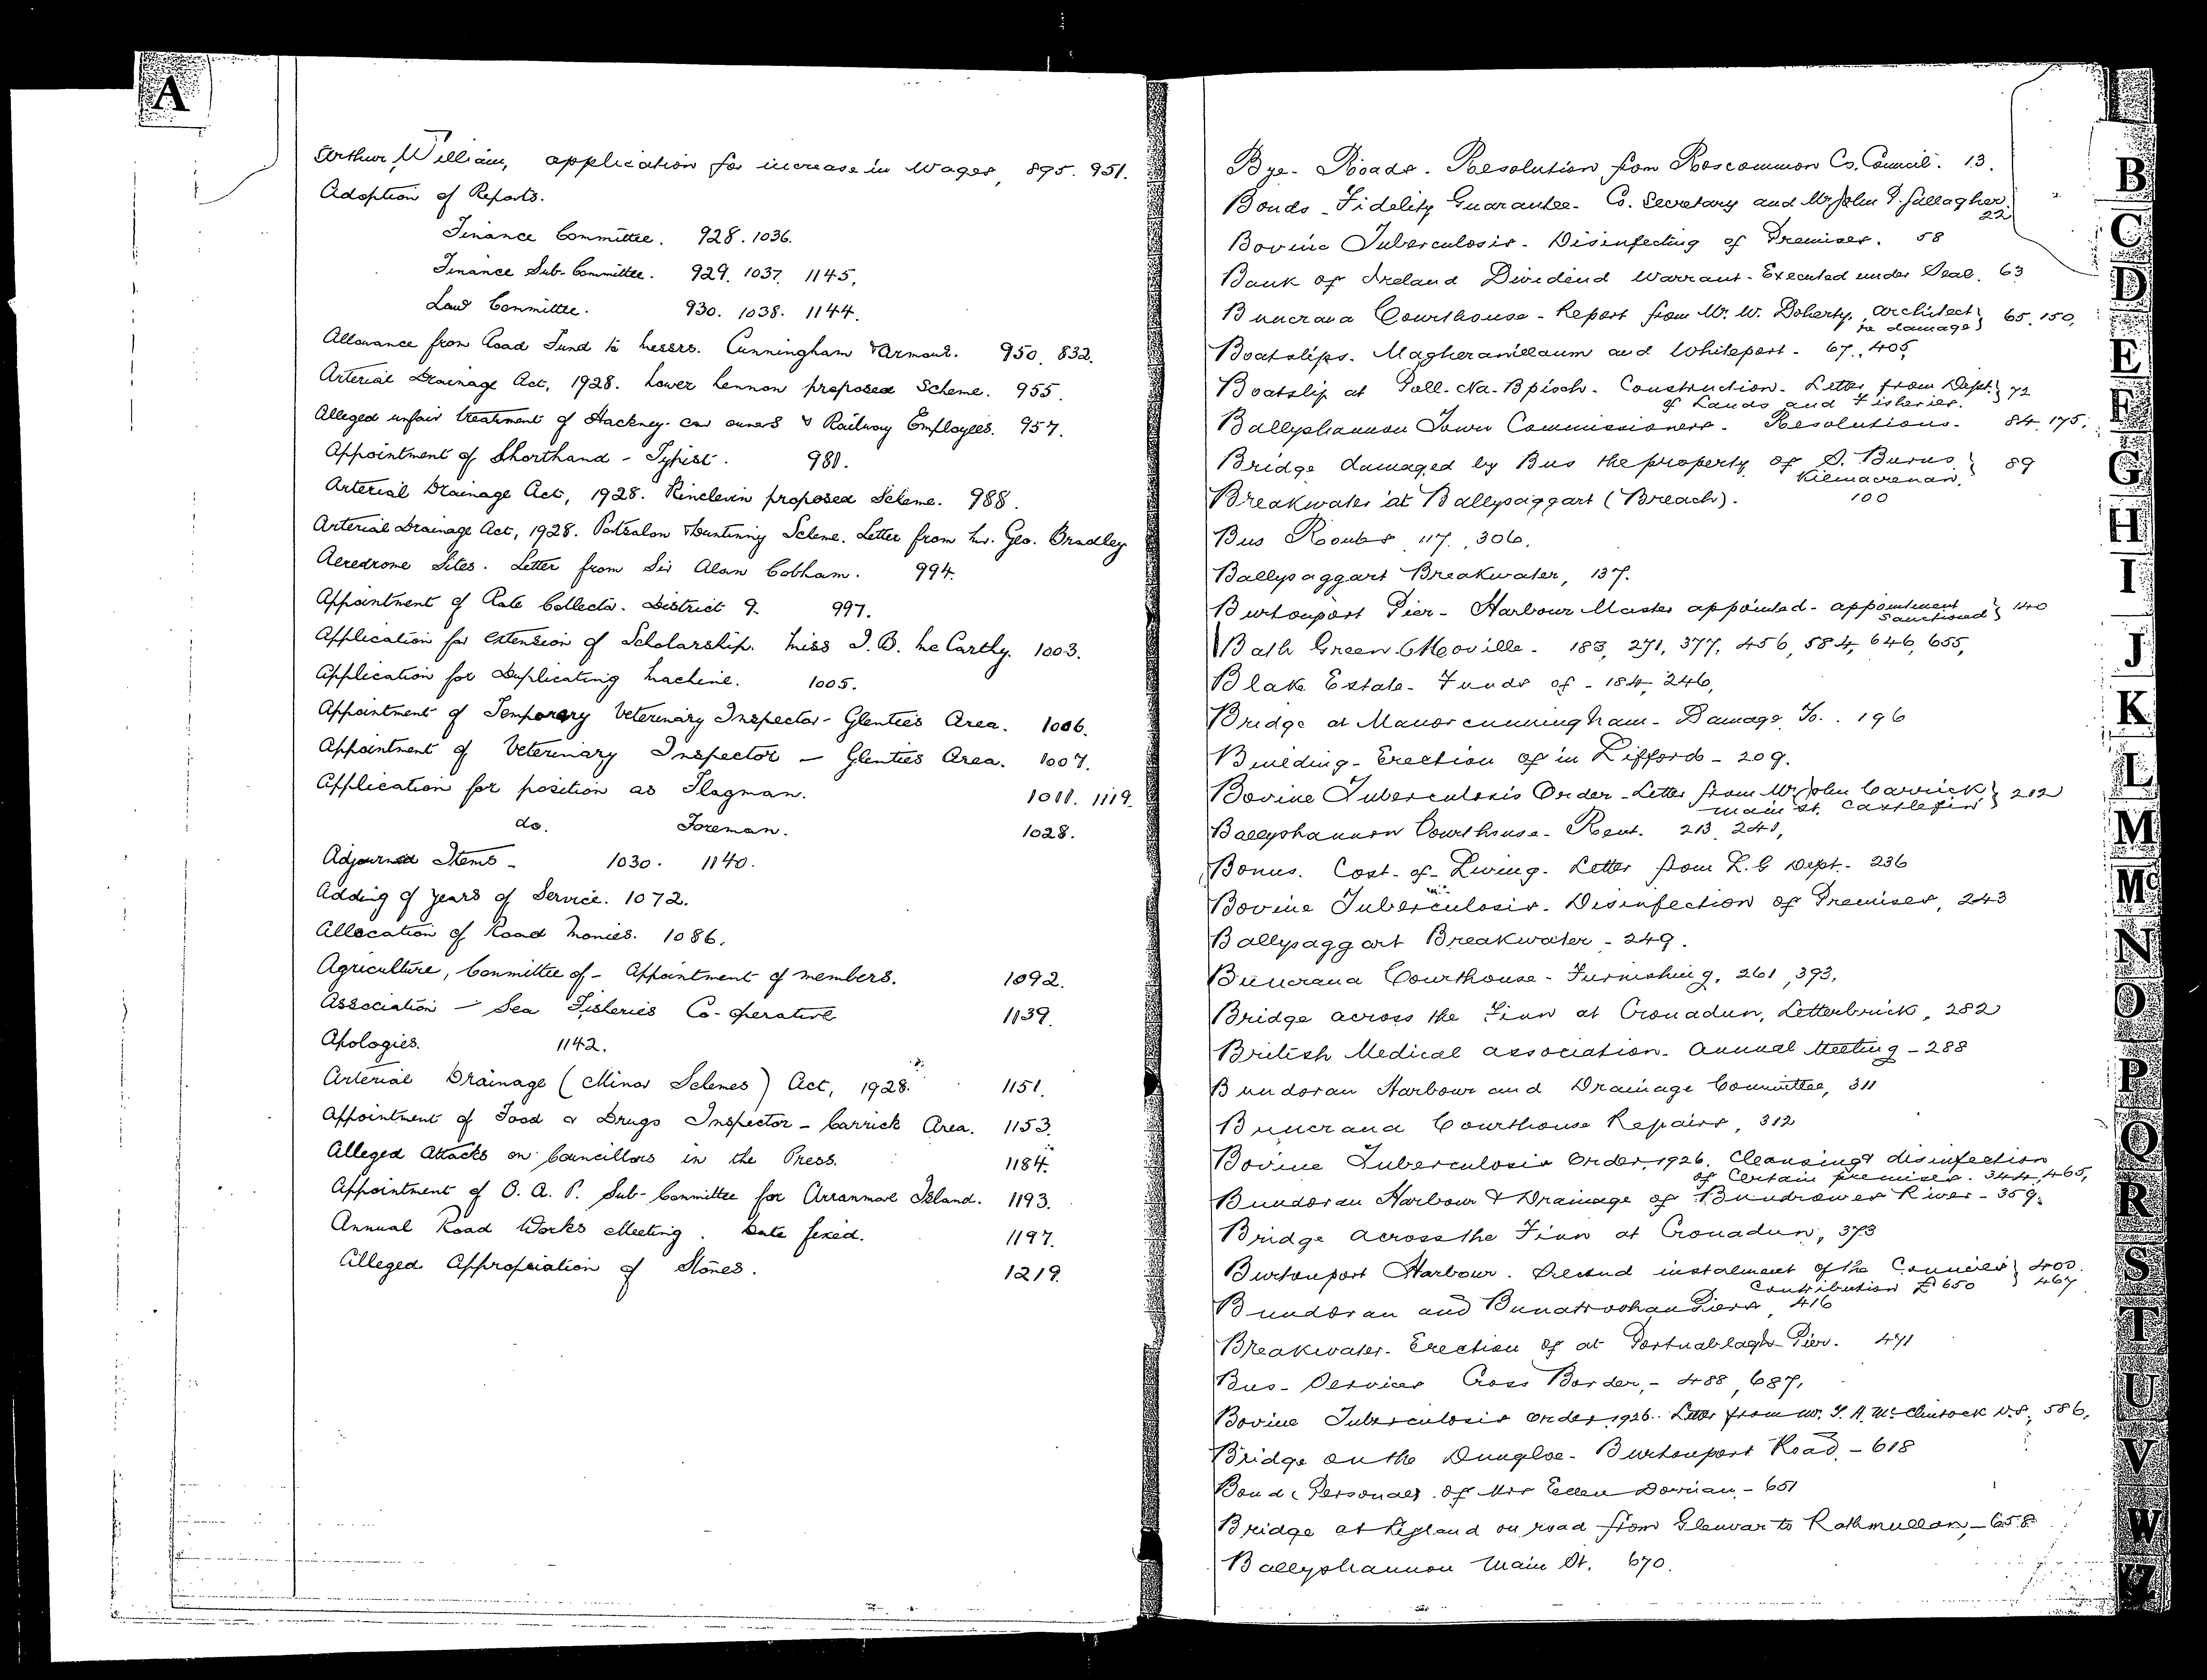 A
Arthur, William, application for increase in Wages, 895. 951.
Adoption of Reports.
Finance Committee. 928. 1036.
Finance Sub-Committee. 929. 1037. 1145.
Law Committee. 930. 1038. 1144.
Allowance from Road Fund to Messrs. Cunningham & Armour. 950. 832.
Arterial Drainage Act, 1928. Lower Lennon proposed Scheme. 955.
Alleged unfair treatment of Hackney-car owners & Railway Employees. 957.
Appointment of Shorthand-Typist. 980.
Arterial Drainage Act, 1928. proposed Scheme. 988.
Arterial Drainage Act, 1928. Portsalon & Scheme. Letter from Mr. Geo. Bradley
Aeredrome Sites. Letter from Sir Alan Cobham. 994.
Appointment of Rate Collector. District 9. 997.
Application for extension of Scholarship. Miss I. B. McCarthy. 1003.
Application for Duplicating Machine. 1005.
Appointment of Temporary Veterinary Inspector - Glenties Area. 1006.
Appointment of Veterinary Inspector - Glenties Area. 1007.
Application for position as Flagman. 1011. 1119.
do. Foreman. 1028.
Adjourned Items - 1030. 1140.
Adding of years of Service. 1072.
Allocation of Road Monies. 1086.
Agriculture, Committee of - Appointment of members. 1092.
Association - Sea Fisheries Co-operative 1139.
Apologies. 1142.
Arterial Drainage (Minor Schemes) Act, 1928. 1151.
Appointment of Food & Drugs Inspector - Carrick Area. 1153.
Alleged Attacks on Councillors in the Press. 1184.
Appointment of O. A. P. Sub-Committee for Arranmore Island. 1193.
Annual Road Works Meeting. Date fixed. 1197.
Alleged Appropriation of Stones. 1219.
Bye-Roads. Resolution from Roscommon Co. Council. 13.
Bonds - Fidelity Guarantee - Co. Secretary and Mr John P. Gallagher.
22
Bovine Tuberculosis - Disinfecting of Premises. 58
Bank of Ireland Dividend Warrant - Executed under Seal. 63
Buncrana Courthouse - Report from Mr. W. Doherty, architect } 65, 150,
re damage
Boatslips. and Whiteport - 67, 405
Boatslip at Poll-Na-Bpisch - Construction - Letter from Dept. } 72
of Lands and Fisheries.
Ballyshannon Town Commissioners - Resolutions. 84, 175.
Bridge damaged by Bus the property of S. Burns } 89
Kilmacrenan.
Breakwater at Ballysaggart (Breach). 100
Bus Routes 117., 306.
Ballysaggart Breakwater, 137.
Burtonport Pier - Harbour Master appointed - appointment } 140
Sanctioned
Bath Green Moville - 183, 271, 377, 456, 584, 646, 655,
Blake Estate - Funds of - 184, 246,
Bridge at Manorcunningham - Damage To. 196
Building - Erection of in Lifford - 209.
Bovine Tuberculosis Order - Letter from Mr John Carrick } 212
Main St. Castlefin
Ballyshannon Courthouse - Rent. 213, 241,
Bonus. Cost-of-Living. Letter from L.G Dept. - 236
Bovine Tuberculosis. Disinfection of Premises, 243
Ballysaggart Breakwater - 249.
Buncrana Courthouse - Furnishing, 261, 393.
Bridge across the Finn at Cronadun, Letterbrick, 282
British Medical association. Annual Meeting - 288
Bundoran Harbour and Drainage Committee, 311
Buncrana Courthouse Repairs, 312
Bovine Tuberculosis Order, 1926. Cleansing & disinfection
of Certain premises. 344, 465,
Bundoran Harbour & Drainage of Bundrowes River - 359.
Bridge across the Finn at Cronadun, 373
Burtonport Harbour. Second instalment of the Council's } 400.
Contribution £650 } 467
Bundoran and Bunatroohan Piers, 416
Breakwater - Erection of at Portnablagh Pier. 471
Bus-Services Cross Border, - 488, 687,
Bovine Tuberculosis Order, 1926. Letter from Mr. McClintock V.S., 586,
Bridge on the Dungloe - Burtonport Road, - 618
Bond (Personal) of Mrs Ellen Dorrian, - 651
Bridge at on road from Glenvar to Rathmullan, - 658
Ballyshannon Main St. 670.
B
C
D
E
F
G
H
I
J
K
L
M
Mc
N
O
P
Q
R
S
T
U
V
W